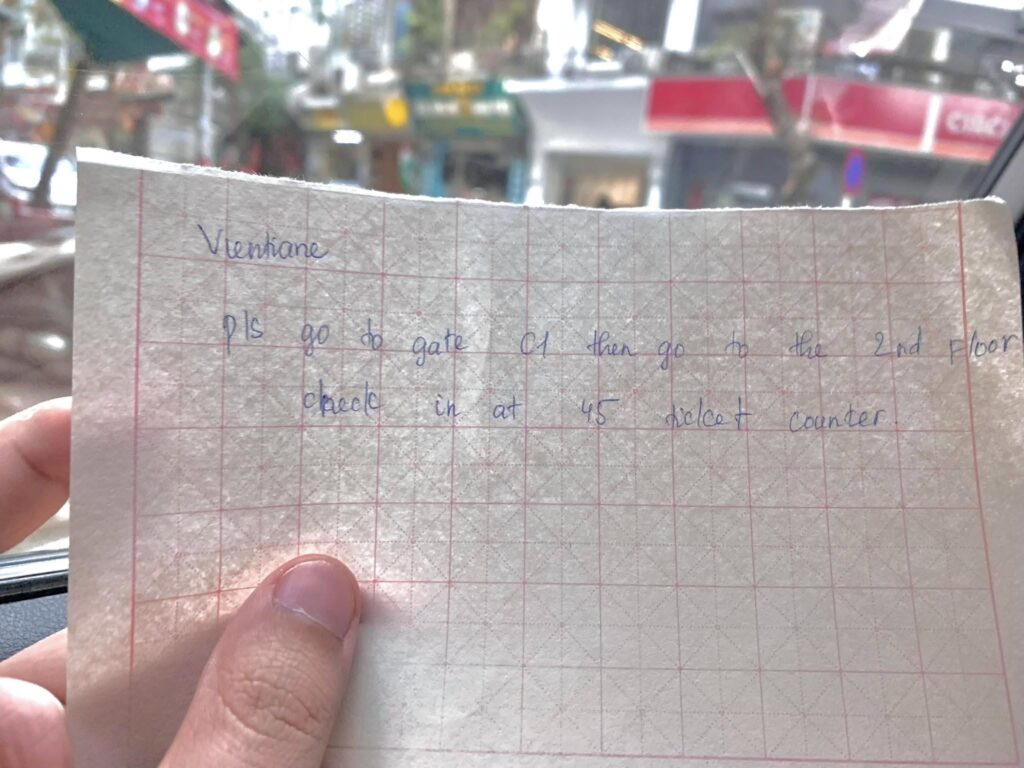 Vientiane
pls go to gate C1 then go to the 2nd floor
check in at 45 ticket counter.